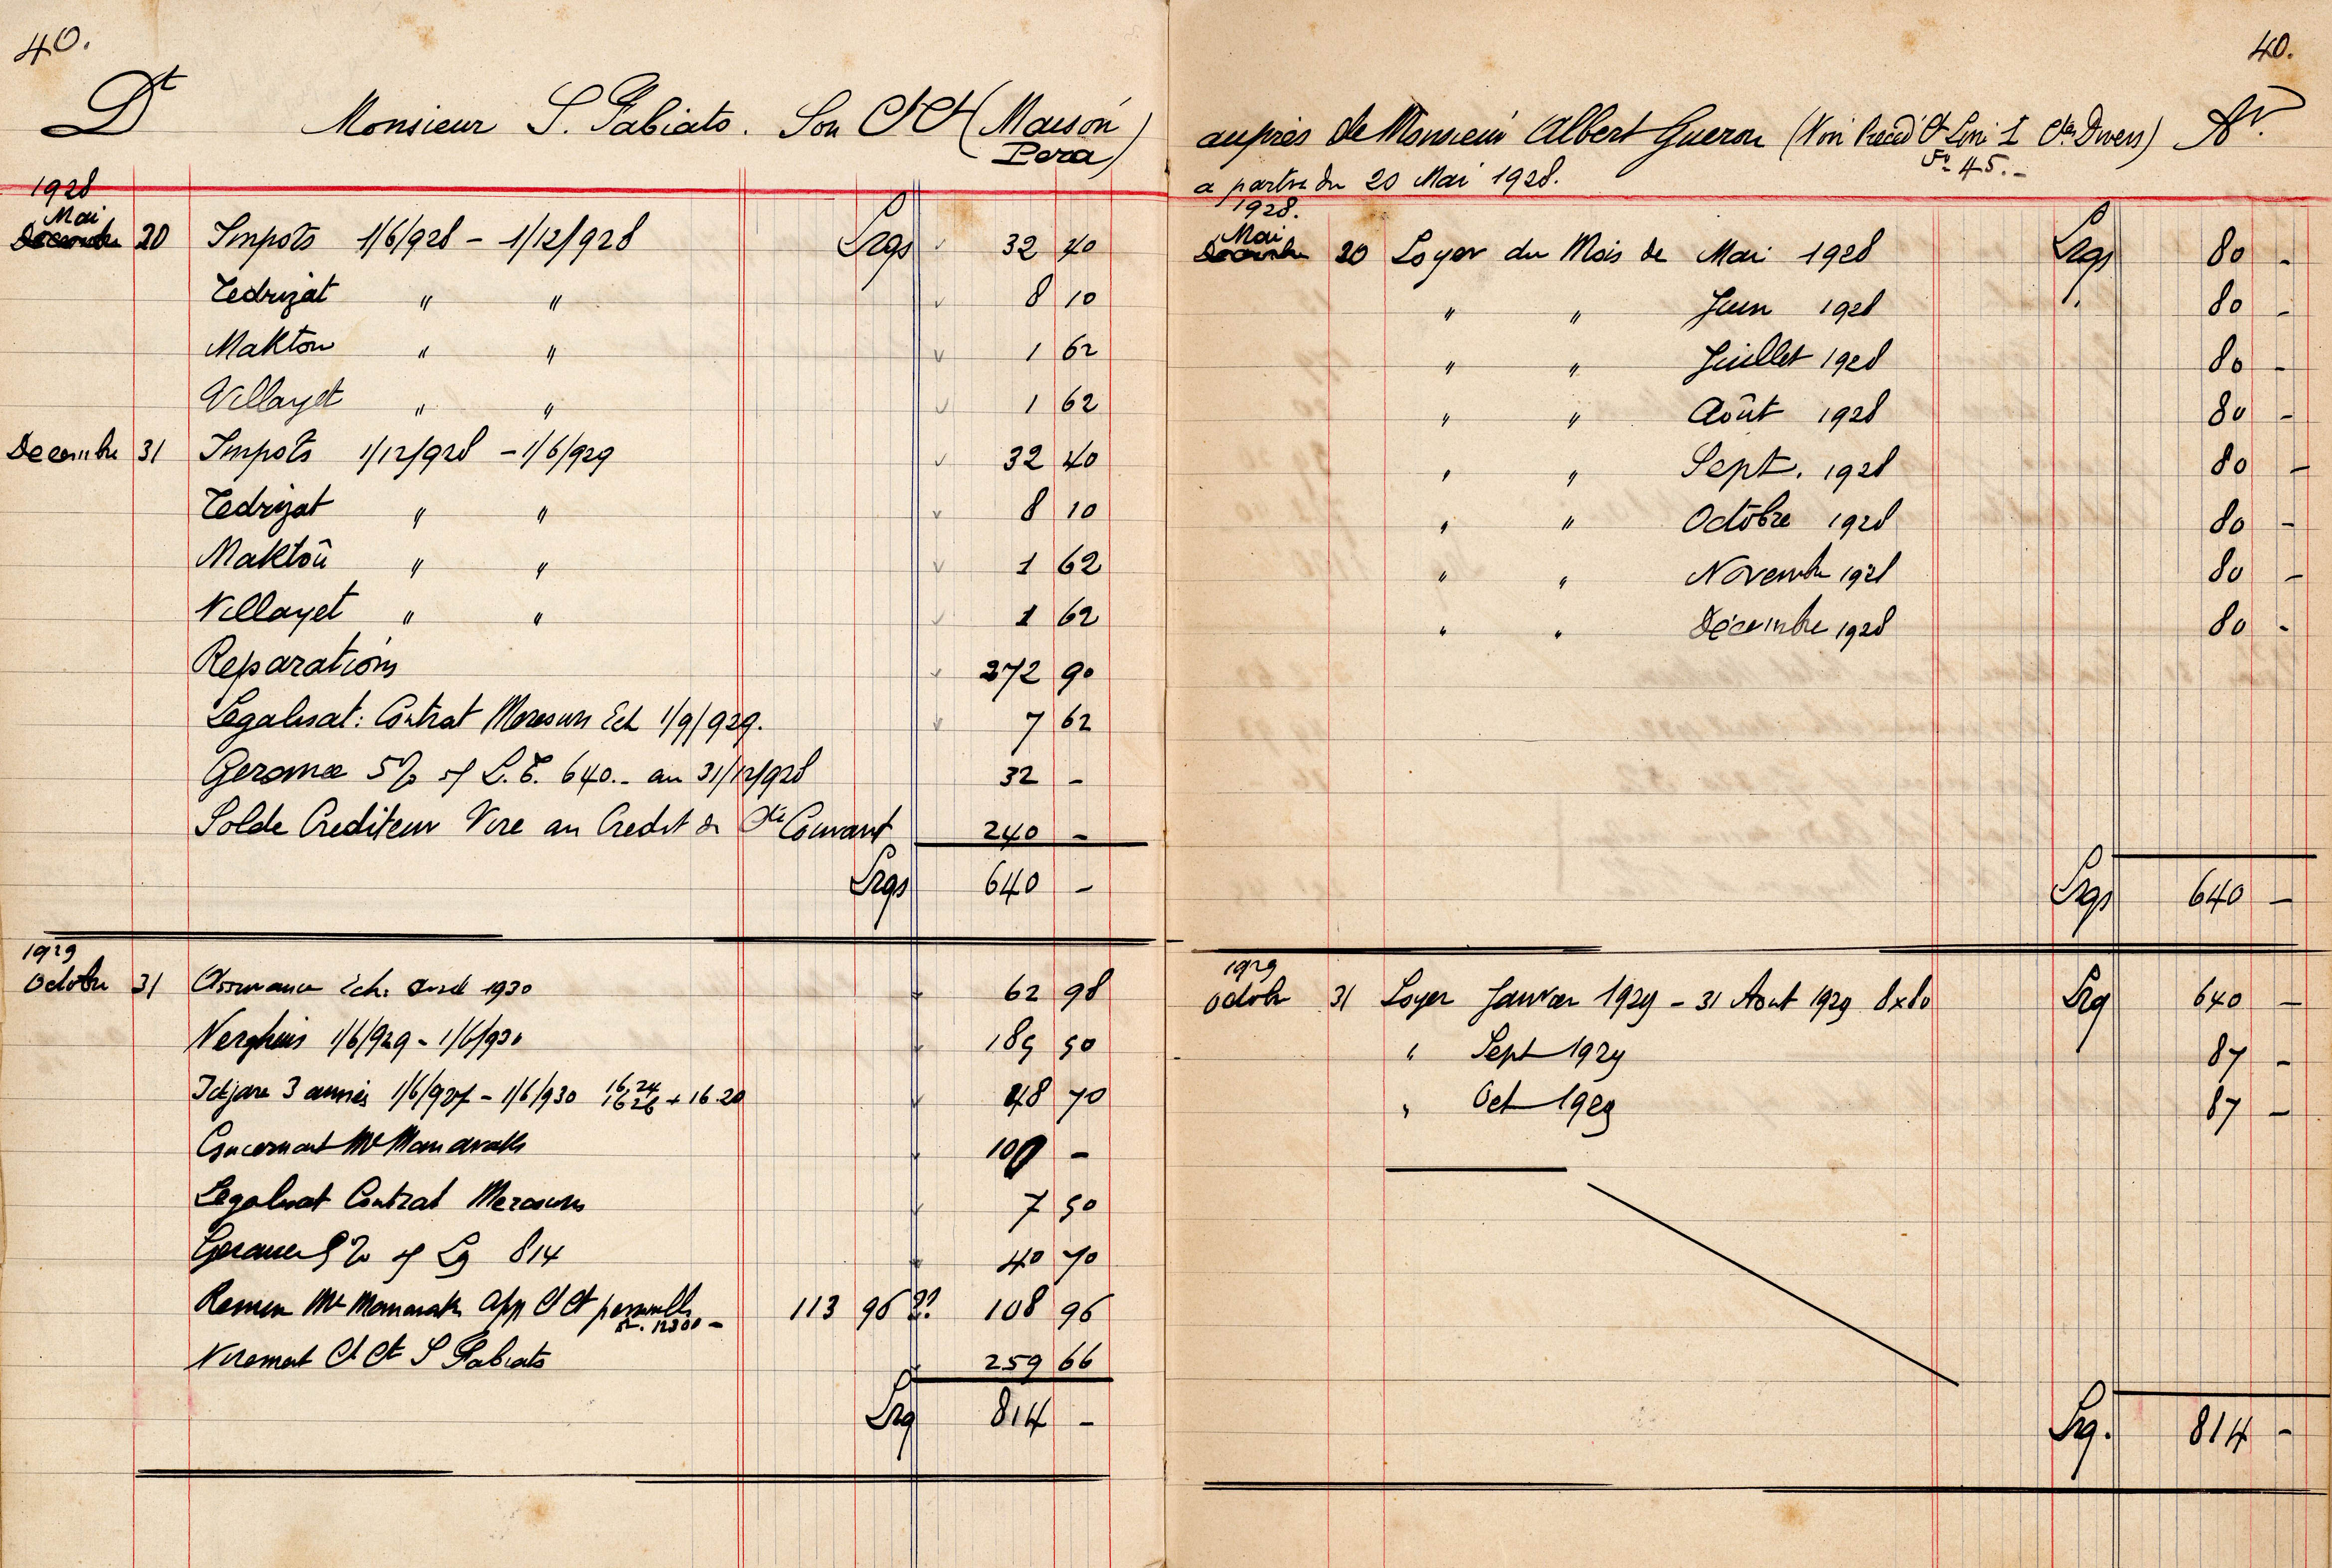 40.
Dt Monsieur S. Pabiato. Son Ct Ct (Maison
Pera)
1928
Mai
20 Impots 1/6/928 - 1/12/928 Ltqs 32 40
Tedrizat " " 8 10
Maktou " " 1 62
Villayet " " 1 62
Decembre 31 Impots 1/12/928 - 1/6/929 32 40
Tedrizat " " 8 10
Maktoû " " 1 62
Villayet " " 1 62
Reparations 272 90
Legalisat: Contrat Ech 1/9/929. 7 62
Gerance 5% s/ L.T. 640.- au 31/12/928 32 -
Solde Crediteur Vire au Credit de Cte Courant 240 -
Ltqs 640 -
1929
Octobre 31 Assurance Ech. 1930 62 98
Verghuis 1/6/929 - 1/6/930 185 50
Idjare 3 années 1/6/927 - 1/6/930 16.24 16.26 + 16.20 48 70
Mr 100 -
Legalisat Contrat 7 50
Gerance 5% s/ Lq 814 40 70
Remen Mr App Ct Ct 113 96 ?? 108 96
Virement Ct Ct S Pabiato 259 66
Ltq 814 -
40.
auprès de Monsieur Albert Gueron (Voir Ct Divers) Av.
45.-
a partir du 20 Mai 1928.
1928.
Mai
20 Loyer du Mois de Mai 1928 Ltqs 80 -
" " Juin 1928 80 -
" " Juillet 1928 80 -
" " Août 1928 80 -
" " Sept. 1928 80 -
" " Octobre 1928 80 -
" " Novembre 1928 80 -
" " Décembre 1928 80 -
Ltqs 640 -
1929
Octobre 31 Loyer Janvier 1929 - 31 Aout 1929 8x80 Ltq 640 -
" Sept 1929 87 -
" Oct 1929 87 -
Ltq. 814 -